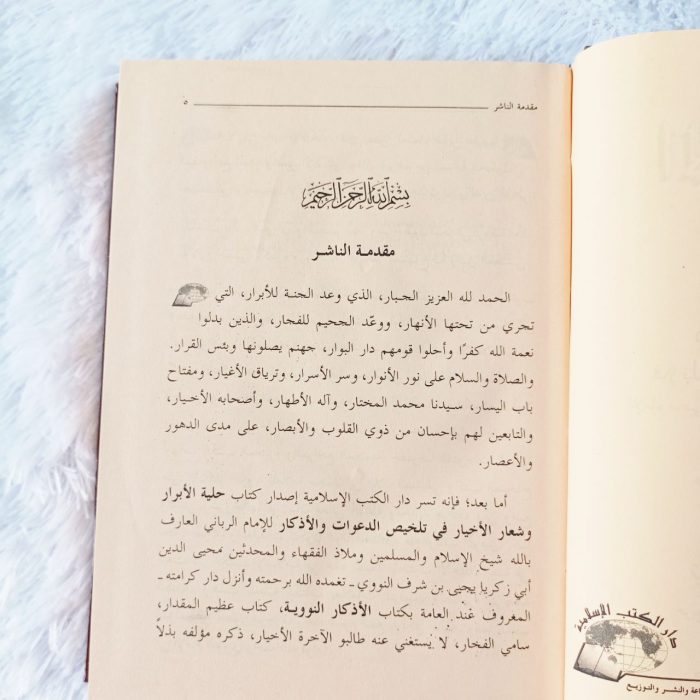 مقدمة الناشر ٥
بسم الله الرحمن الرحيم
مقدمـة الناشـر
الحمد لله العزيز الجبار، الذي وعد الجنة للأبرار، التي
تجري من تحتها الأنهار، ووعّد الجحيم للفجار، والذين بدلوا
نعمة الله كفرًا وأحلوا قومهم دار البوار، جهنم يصلونها وبئس القرار.
والصلاة والسلام على نور الأنوار، وسر الأسرار، وترياق الأغيار، ومفتاح
باب اليسار، سيدنا محمد المختار، وآله الأطهار، وأصحابه الأخيار،
والتابعين لهم بإحسان من ذوي القلوب والأبصار، على مدى الدهور
والأعصار.
أما بعد؛ فإنه تسر دار الكتب الإسلامية إصدار كتاب حلية الأبرار
وشعار الأخيار في تلخيص الدعوات والأذكار للإمام الرباني العارف
بالله شيخ الإسلام والمسلمين وملاذ الفقهاء والمحدثين محيى الدين
أبي زكريا يحيى بن شرف النووي ـ تغمده الله برحمته وأنزل دار كرامته ـ
المعروف عند العامة بكتاب الأذكار النووية، كتاب عظيم المقدار،
سامي الفخار، لا يستغني عنه طالبو الآخرة الأخيار، ذكره مؤلفه بذلاً
دار الكتب الإسلامية
والنشر والتوزيع